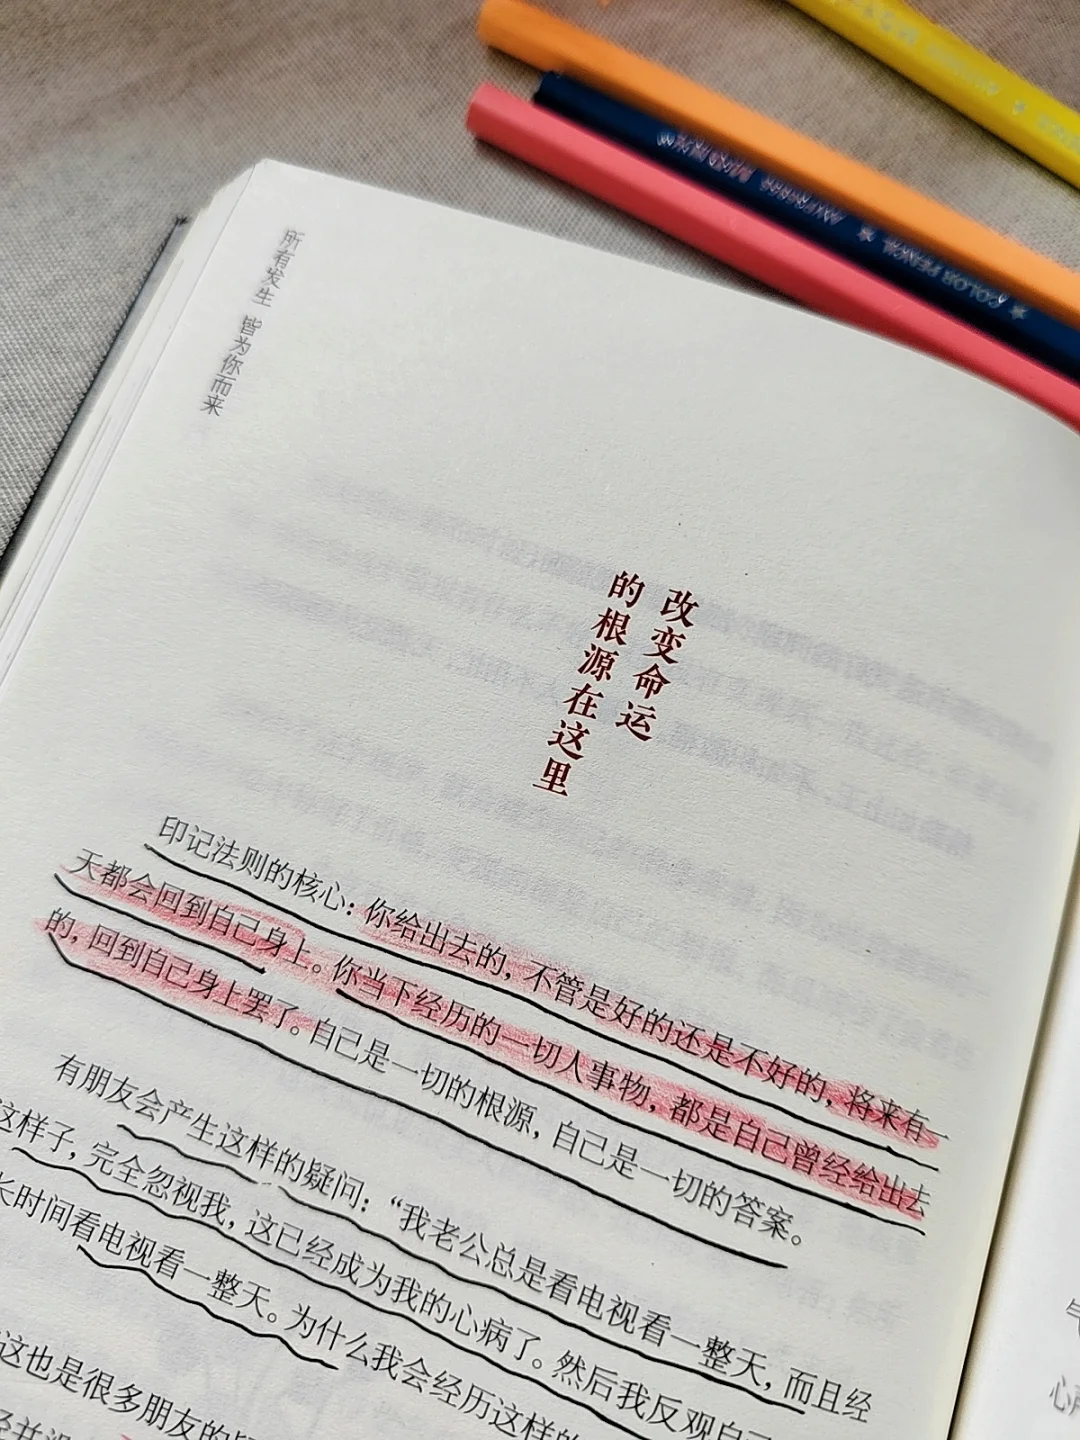 COLOR PENCIL
所有发生 皆为你而来
改变命运
的根源在这里
印记法则的核心：你给出去的，不管是好的还是不好的，将来有一
天都会回到自己身上。你当下经历的一切人事物，都是自己曾经给出去
的，回到自己身上罢了。自己是一切的根源，自己是一切的答案。
有朋友会产生这样的疑问：“我老公总是看电视看一整天，而且经
这样子，完全忽视我，这已经成为我的心病了。然后我反观自己
长时间看电视看一整天。为什么我会经历这样的
这也是很多朋友的疑
气
心